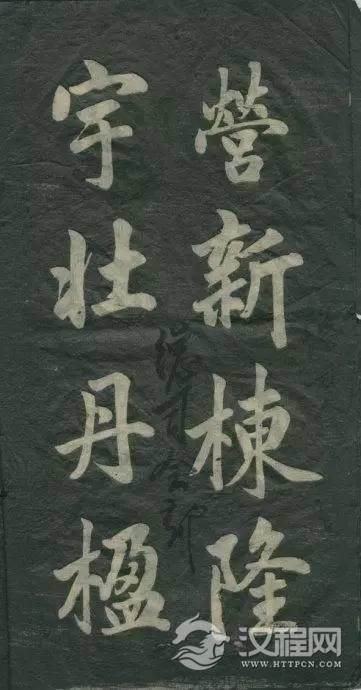 營新棟隆
宇壯丹楹
汉程网
WWW.HTTPCN.COM